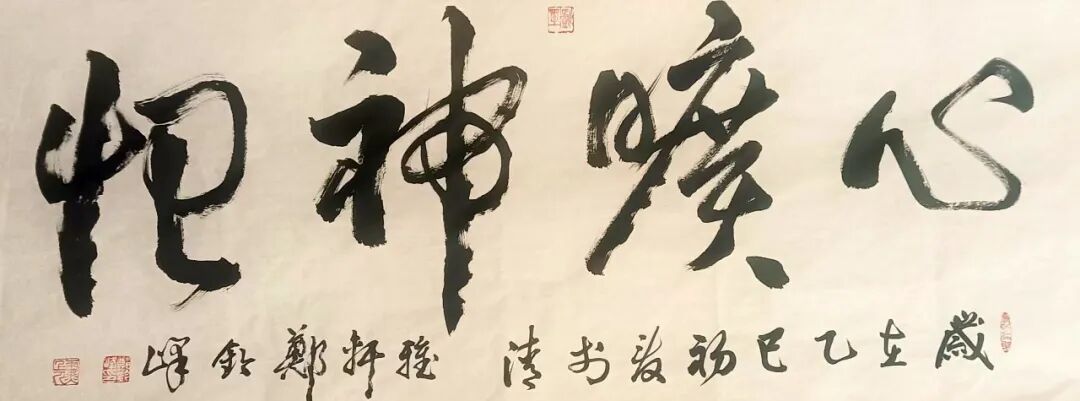 心曠神怡
歲在乙巳初夏於清雅軒鄭峰